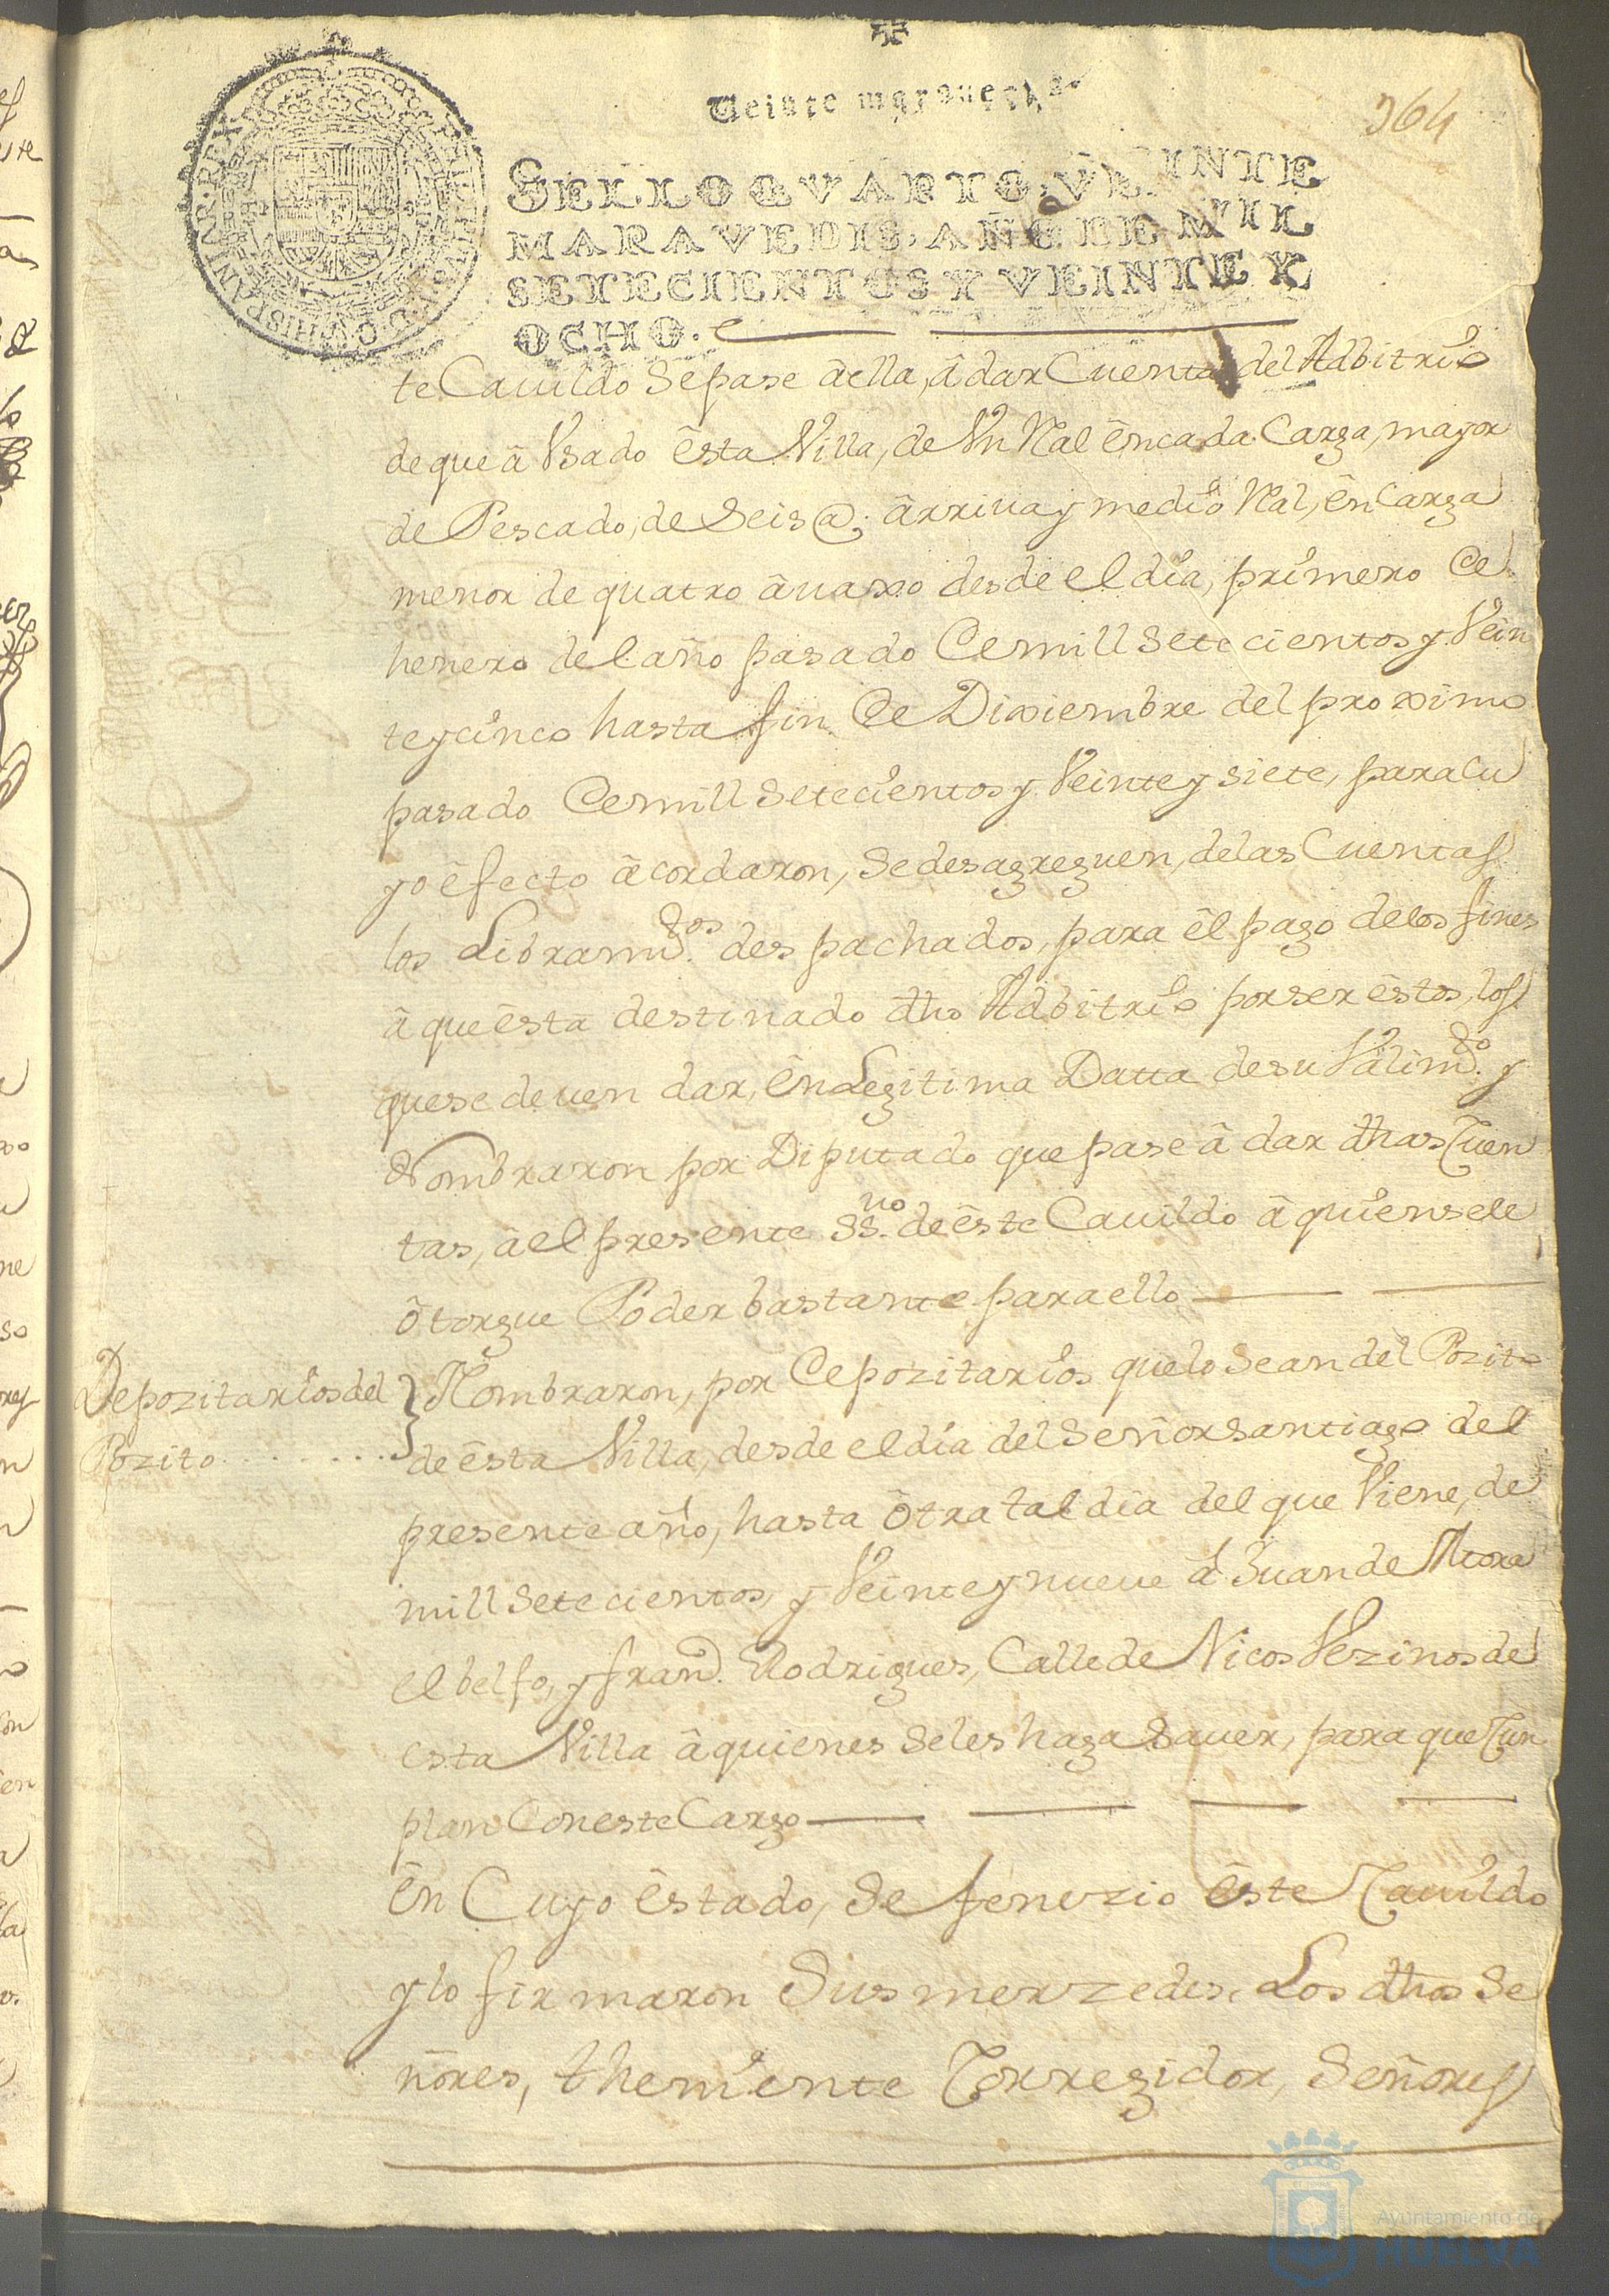 Veinte maravedis
364
SELLO QVARTO, VEINTE
MARAVEDIS, AÑO DE MIL
SETECIENTOS Y VEINTE Y
OCHO.
te Cauildo Se pase âella, â dar Cuenta del Adbitrio
de que â Vsado êsta Villa, de Vn Ral ên cada Carga, mayor
de Pescado, de Seis @. ârriua y medio Ral, ên Carga
menor de quatro âuaxo desde el dia, primero De
henero del año pasado De mill Setecientos y Vein
te y cinco hasta fin De Diziembre del proximo
pasado De mill Setecientos y Veinte y siete, para Cu
yo êfecto âcordaron, Se desagreguen, de las Cuentas
los Libramtos. despachados, para êl pago de los fines
â que êsta destinado dho Adbitrio por ser êstos, los
que se deuen dar, ên Legitima Datta de su Valimto. y
Nombraron por Diputado que pase â dar dhas Cuen
tas, âel presente SSno. de êste Cauildo â quien se le
ôtorgue Poder bastante para ello
Depozitarios del
Pozito
Nombraron, por Depozitarios que lo Sean del Pozito
de êsta Villa, desde el dia del Señor Santiago del
presente año, hasta ôtra tal dia del que Viene, de
mill Setecientos, y Veinte y nueue â Juan de Mora
el belfo, y franco. Rodrigues, Calle de Nicos Vezinos de
esta Villa â quienes Se les haga Sauer, para que Cun
plan Con este Cargo
Ên Cuyo êstado, Se fenezio êste Cauildo
y lo firmaron Sus merzedes, Los dhos Se
ñores, theniente Corregidor, Señores
Ayuntamiento de
HUELVA